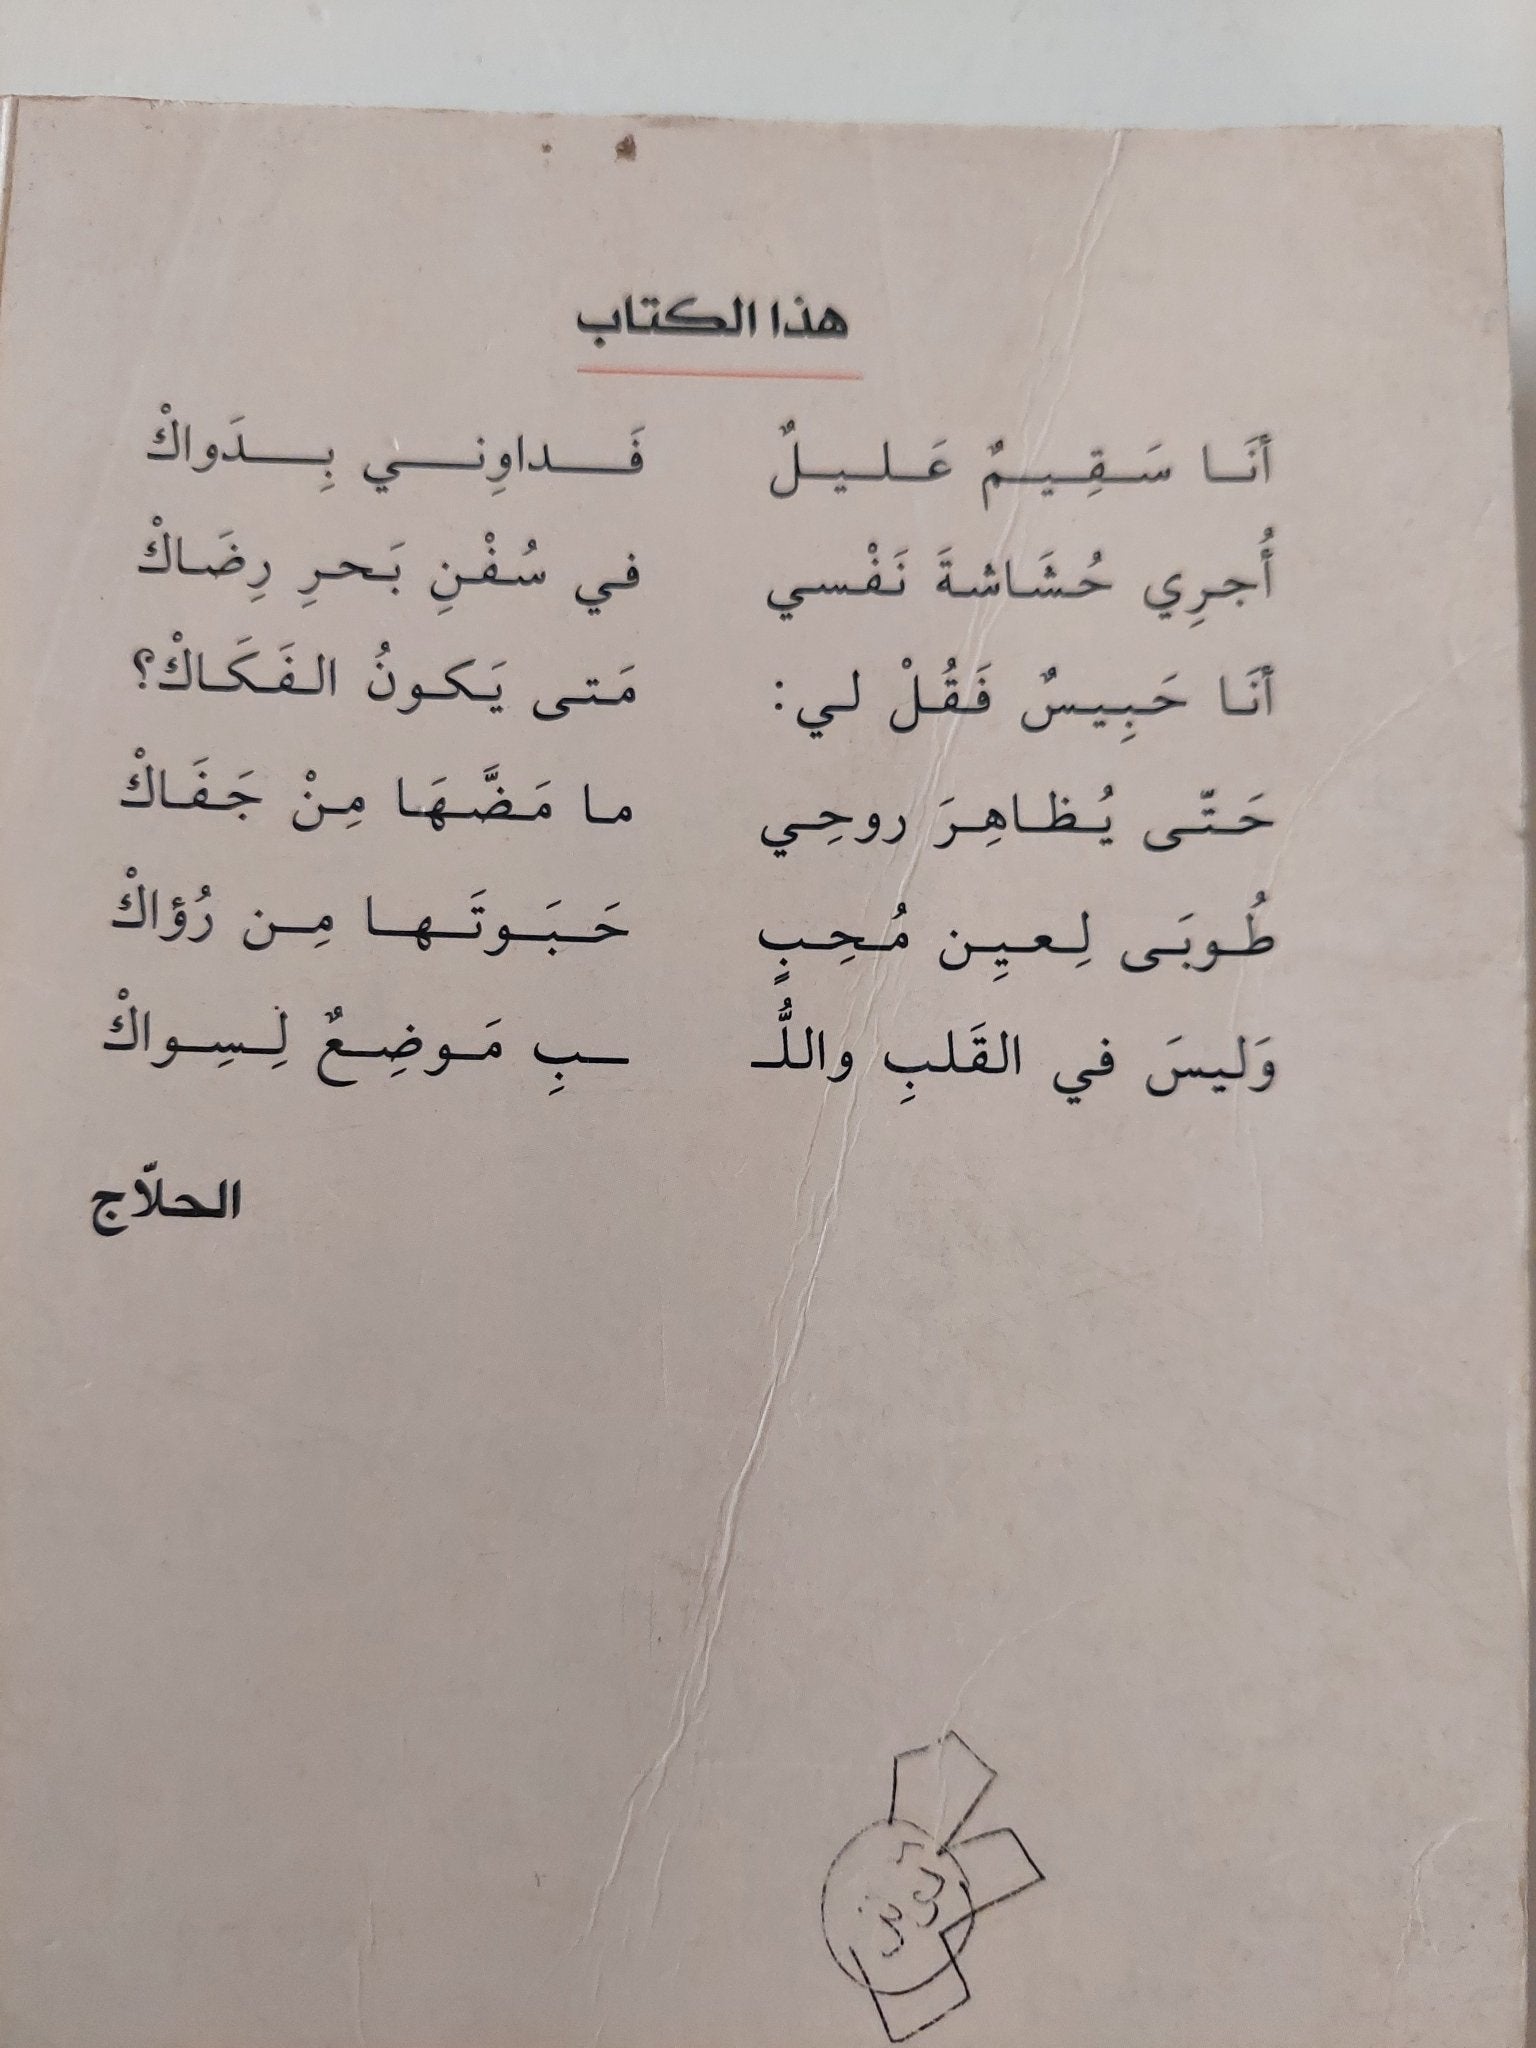 هذا الكتاب
أنَا سَقِيمٌ عَليلٌ فَداوِني بِدَواكْ
أُجرِي حُشَاشةَ نَفْسي في سُفْنِ بَحرِ رِضَاكْ
أنَا حَبِيسٌ فَقُلْ لي: مَتى يَكونُ الفَكَاكْ؟
حَتّى يُظاهِرَ روحِي ما مَضَّهَا مِنْ جَفَاكْ
طُوبَى لِعيِن مُحِبٍ حَبَوتَها مِن رُؤاكْ
وَليسَ في القَلبِ واللُّـ ـبِ مَوضِعٌ لِسِواكْ
الحلاّج